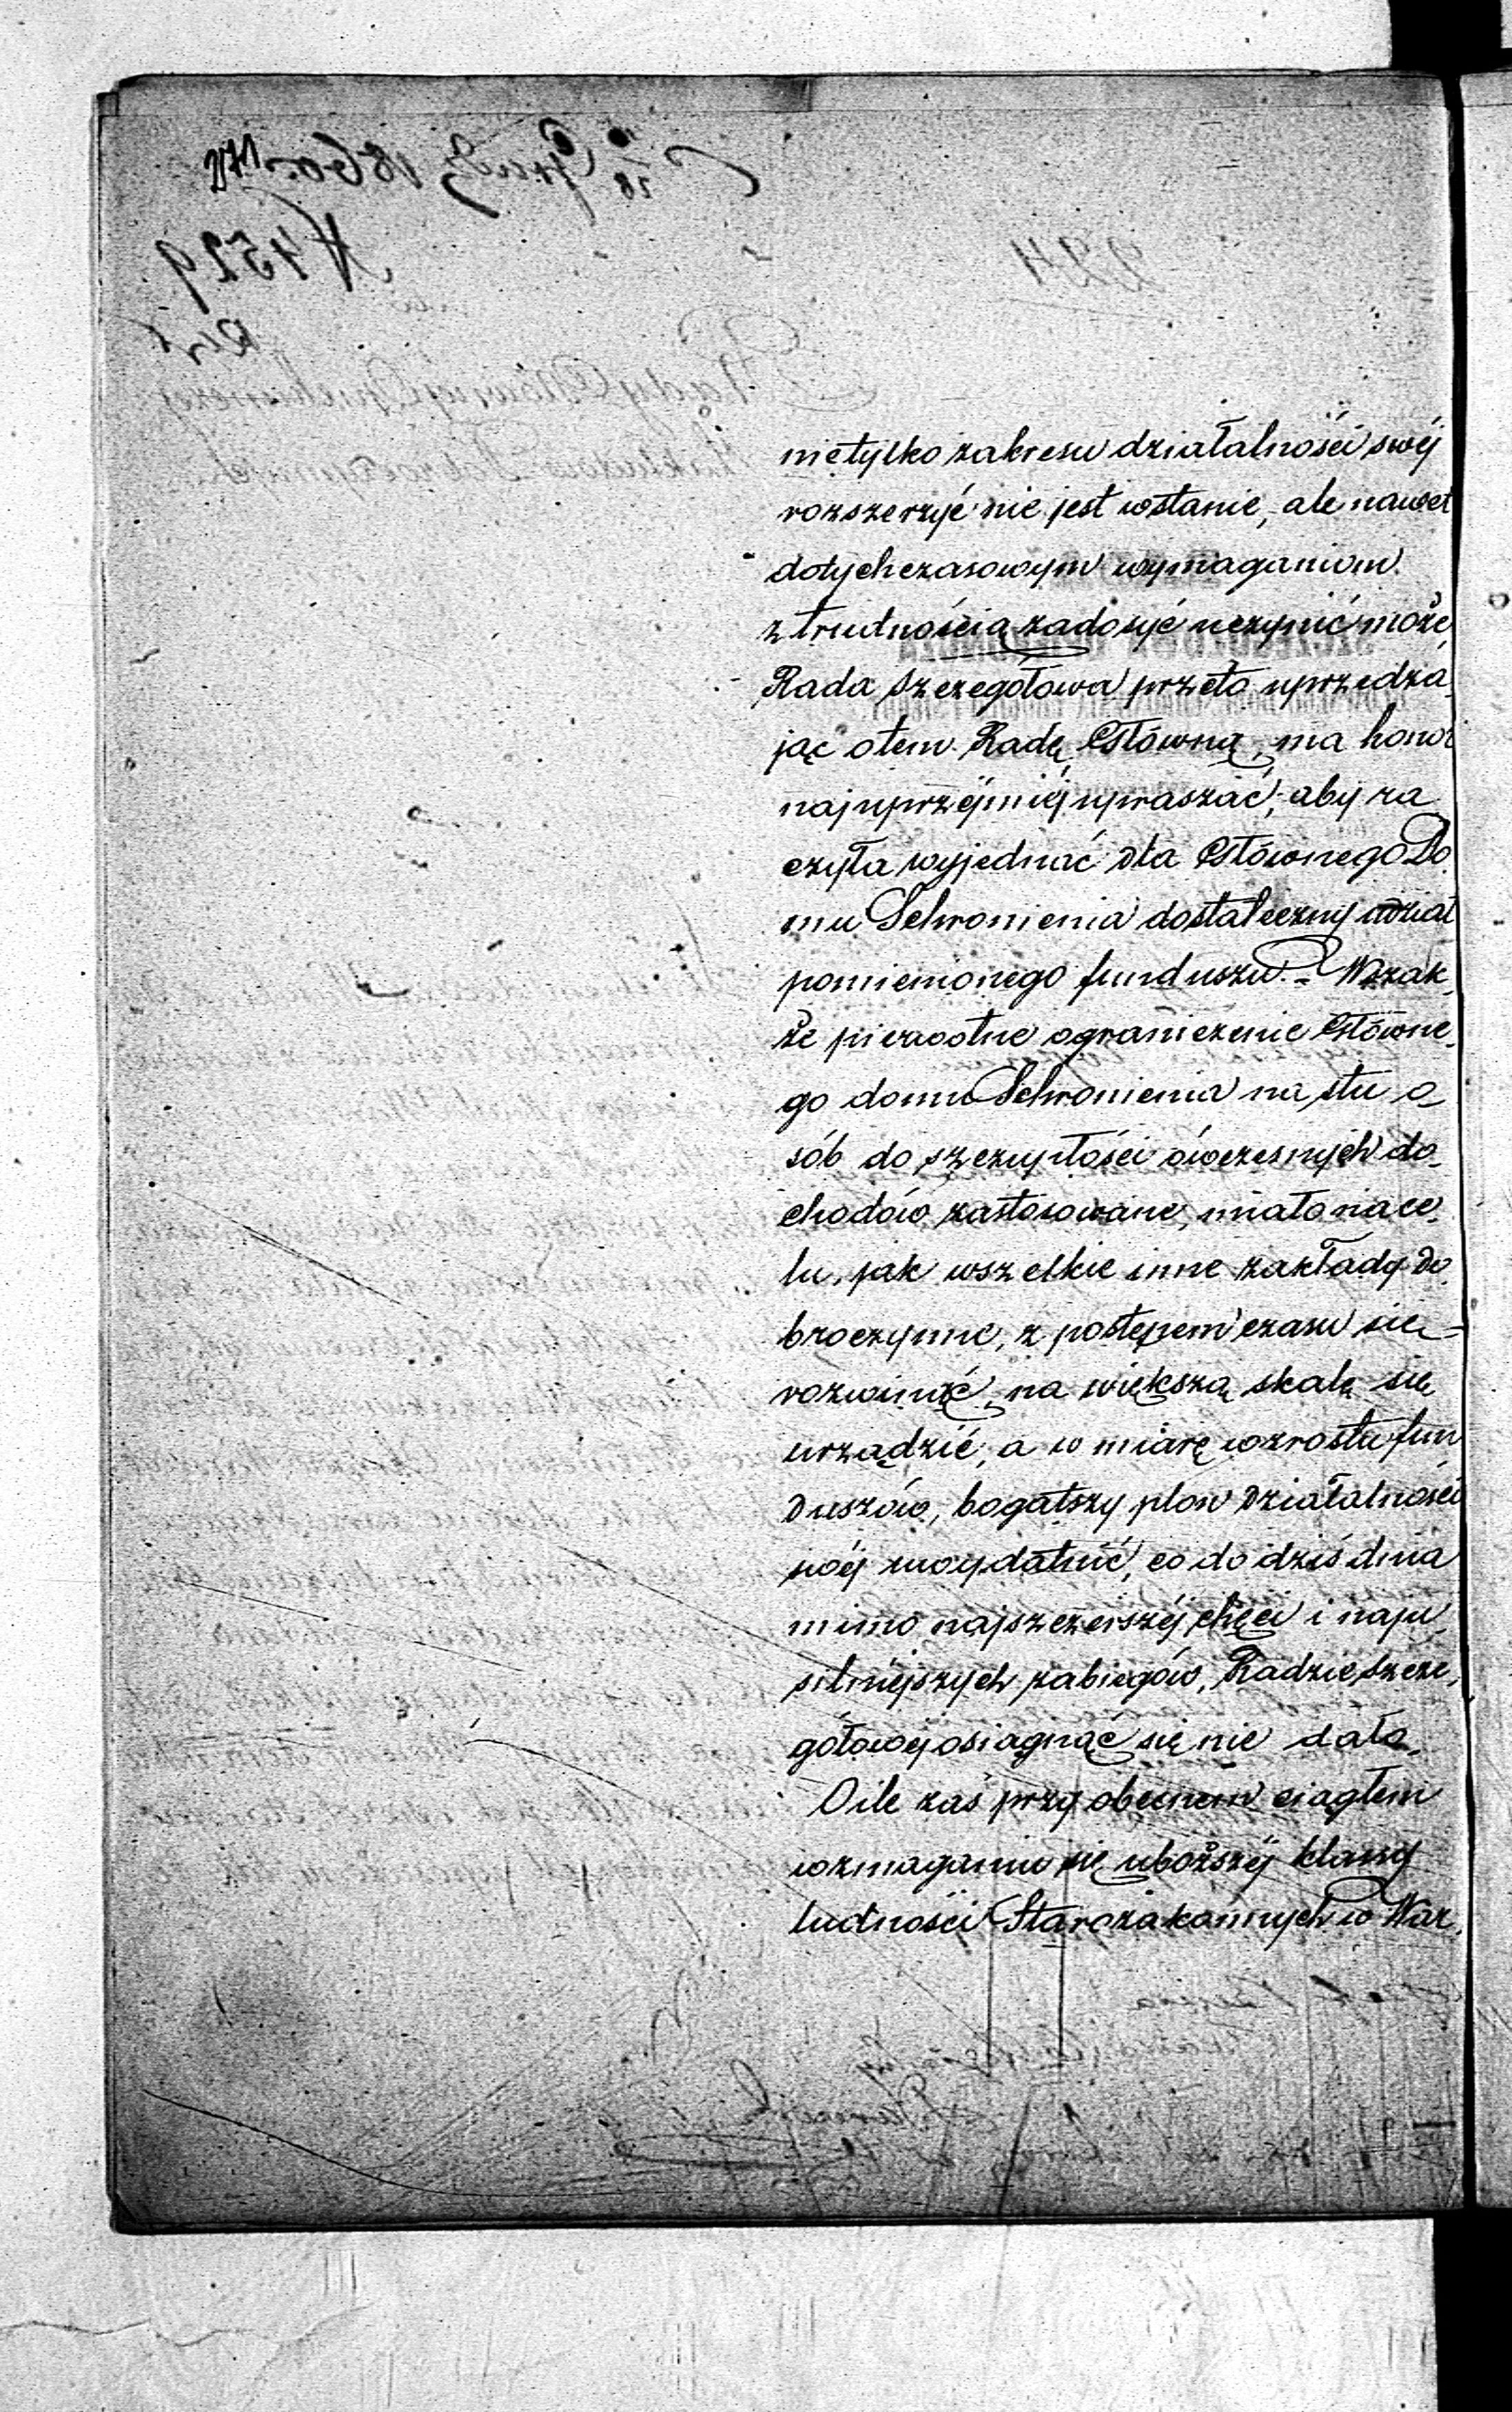 nietylko zakresu działalności swéj
rozszerzyć nie jest wstanie, ale nawet
dotychczasowym wymaganiom
z trudnością zadosyć uczynić może,
Rada Szczegółowa przeto uprzedza-
jąc otem Radę Główną, ma honor
najuprzéjmiéj upraszać, aby ra-
czyła wyjednać dla Głównego Do-
mu Schronienia dostateczny udział
pomienionego funduszu. – Wszak-
że pierwotne ograniczenie Główne-
go domu Schronienia na stu o-
sób do szczupłości ówczesnych do-
chodów zastosowane, miało na ce-
lu, jak wszelkie inne zakłady do-
broczynne, z postępem czasu się
rozwinąć, na większą skalę się
urządzić, a w miarę wzrostu fun-
duszów, bogatszy plon działalności
swéj uwydatnić, co do dziś dnia
mimo najszczerszéj chęci i naju-
silniejszych zabiegów, Radzie Szcze-
gółowej osiągnąć się nie dało.
O ile zaś przy obecném ciągłem
wzmaganiu się uboższéj klassy
ludności Starozakonnych w War-